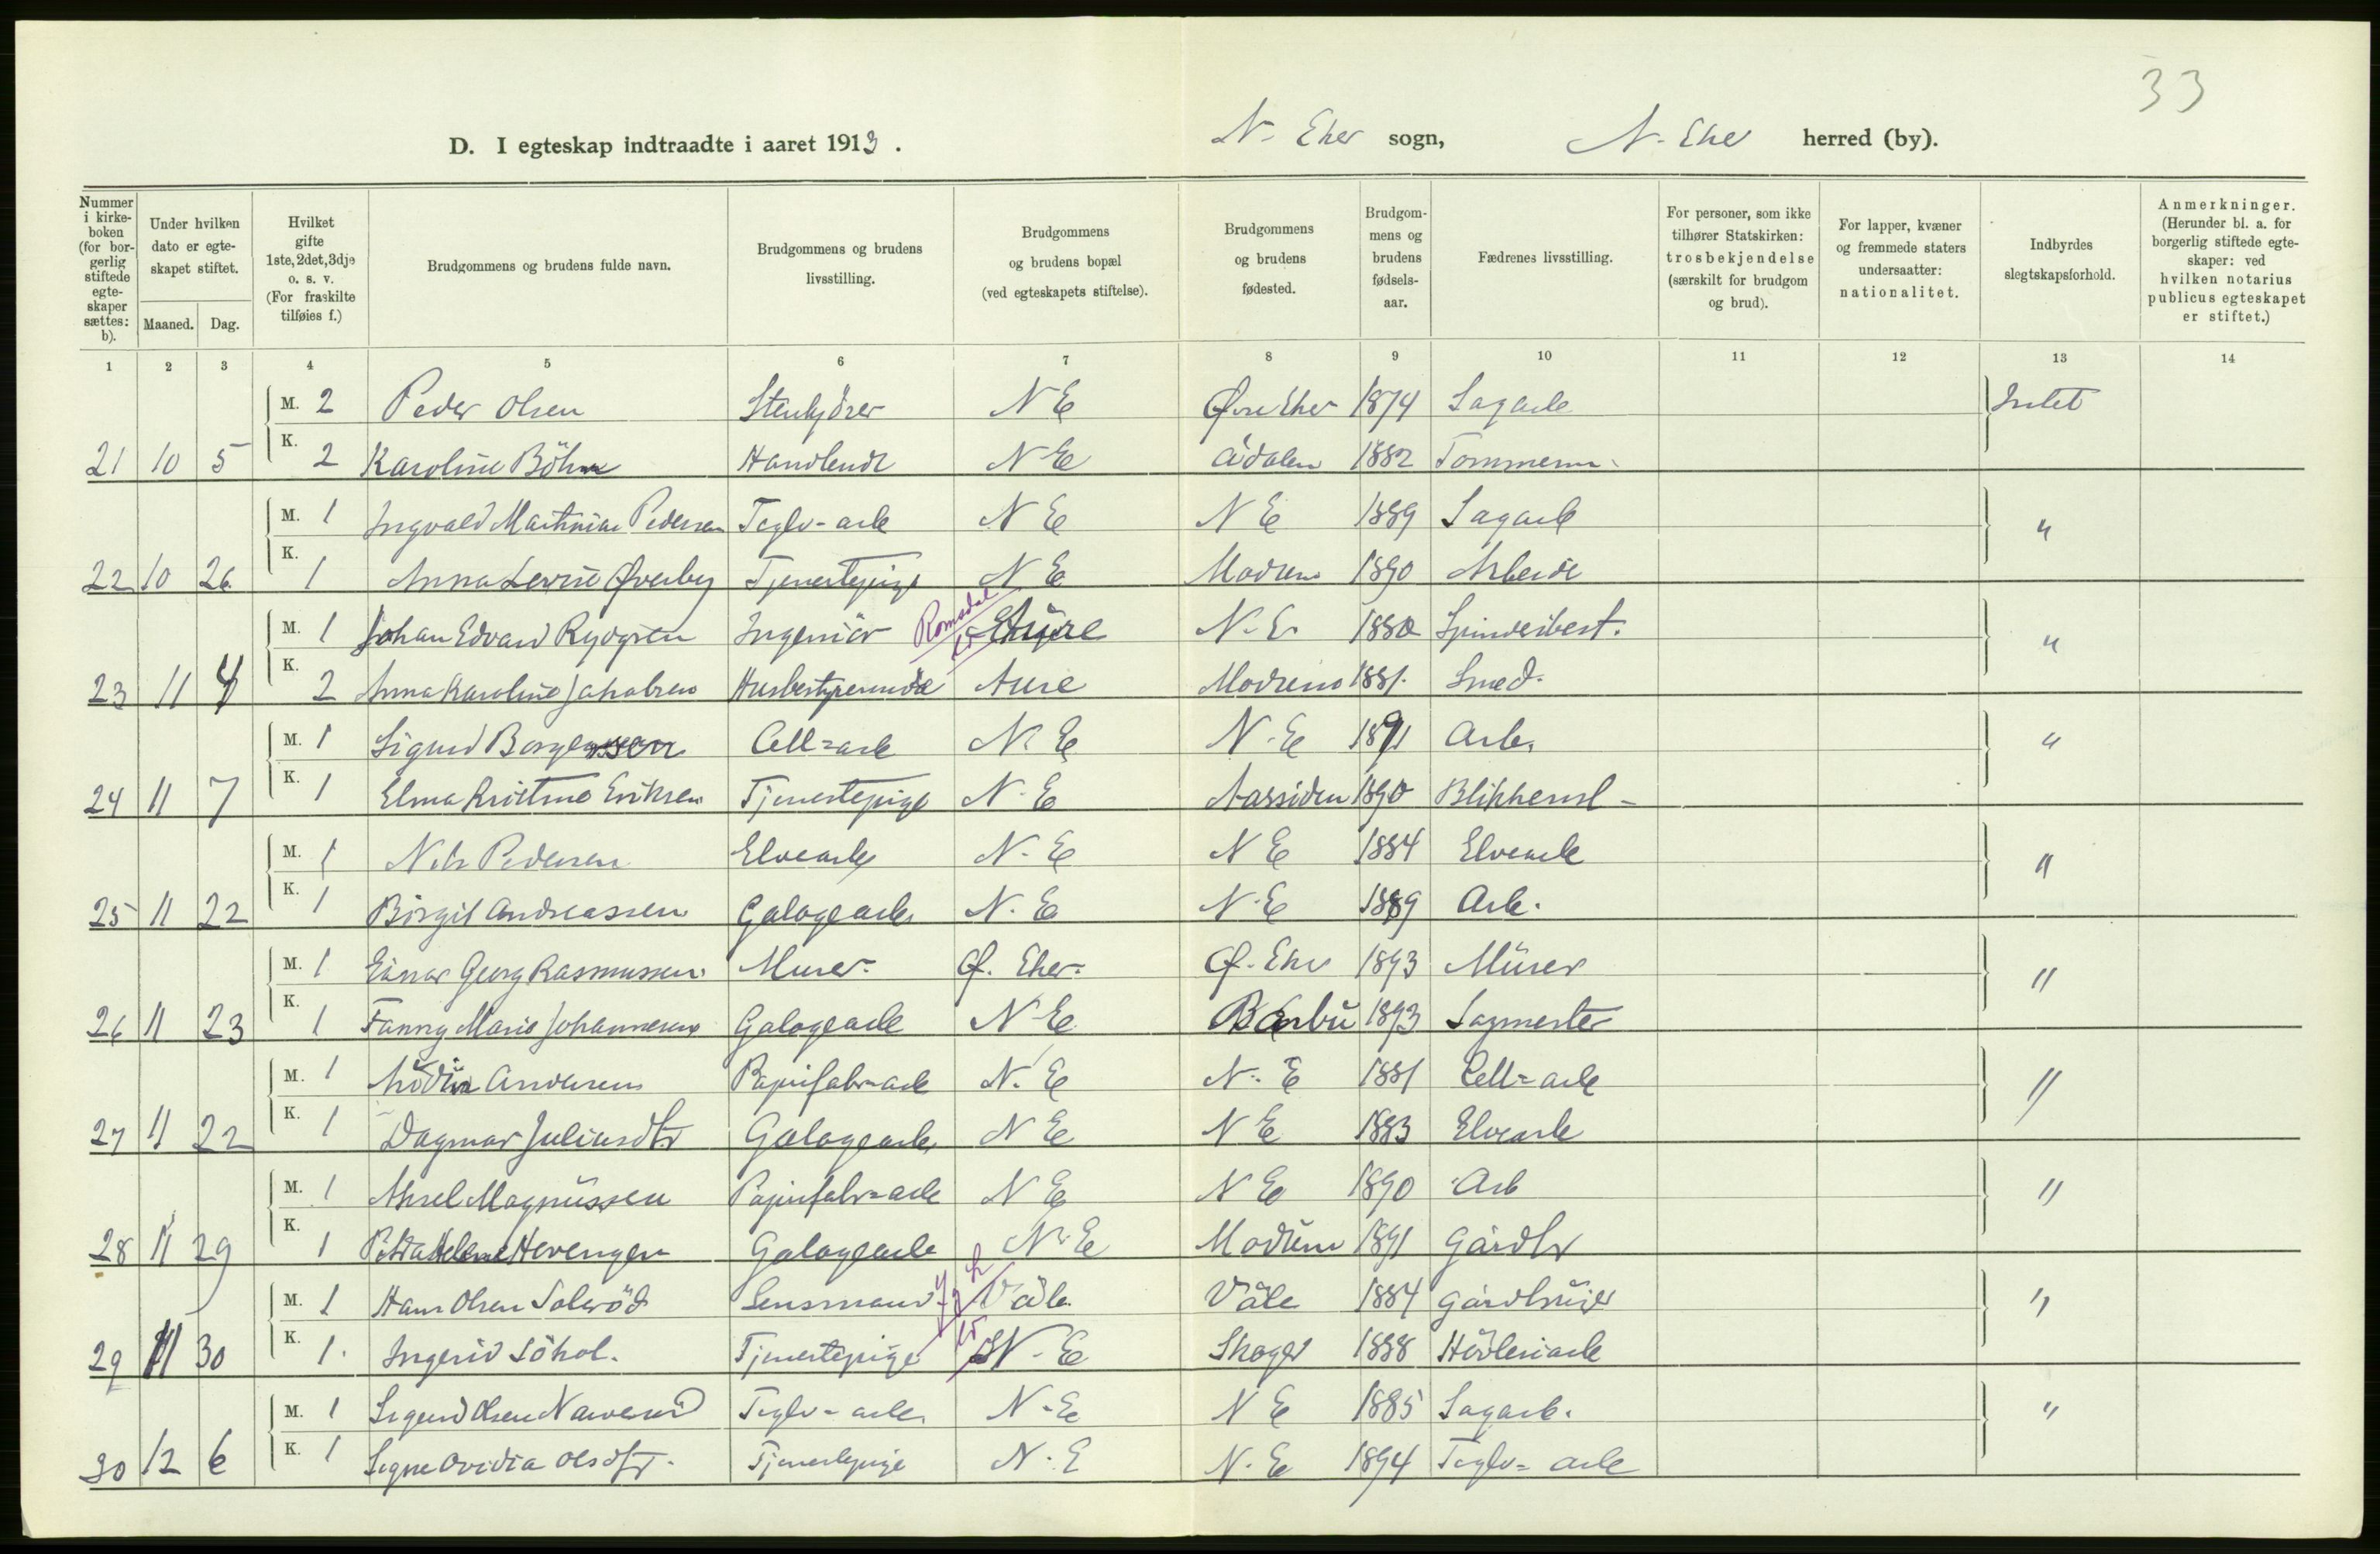 33
D. I egteskap indtraadte i aaret 1913.
N. Eker sogn, N. Eker herred (by).
Nummer i kirkeboken (for borgerlig stiftede egteskaper sættes: b).
Under hvilken dato er egteskapet stiftet.
Maaned. Dag.
Hvilket gifte 1ste, 2det, 3dje o. s. v. (For fraskilte tilføies f.)
Brudgommens og brudens fulde navn.
Brudgommens og brudens livsstilling.
Brudgommens og brudens bopæl (ved egteskapets stiftelse).
Brudgommens og brudens fødested.
Brudgommens og brudens fødselsaar.
Fædrenes livsstilling.
For personer, som ikke tilhører Statskirken: trosbekjendelse (særskilt for brudgom og brud).
For lapper, kvæner og fremmede staters undersaatter: nationalitet.
Indbyrdes slegtskapsforhold.
Anmerkninger. (Herunder bl. a. for borgerlig stiftede egteskaper: ved hvilken notarius publicus egteskapet er stiftet.)
1 2 3 4 5 6 7 8 9 10 11 12 13 14
M. 2 Peder Olsen Stenkjörer N E Øvre Eker 1874 Sagarb Intet
21 10 5 K. 2 Karoline Böhm Handlende N E Ådalen 1882 Tømmerm.
M. 1 Ingvald Martinius Pedersen Teglv-arb N E N E 1889 Sagarb "
22 10 26 K. 1 Anna Lovise Øverby Tjenestepige N E Modum 1890 Arbeide
M. 1 Johan Edvard Rydgren Ingeniör Romsdal Aure N. E. 1880 Spinderibest. "
23 11 4 K. 2 Anna Karoline Jakobsen Husbestyrerinde Aure Modum 1881. Smed.
M. 1 Sigurd Borgersen Cell=arb N. E N. E 1891 Arb. "
24 11 7 K. 1 Elma Kristine Eriksen Tjenestepige N. E Aassiden 1890 Blikkensl-
M. 1 Nils Pedersen Elvearb N. E N E 1884 Elvearb "
25 11 22 K. 1 Birgit Andreassen Galogearb N. E N. E 1889 Arb.
M. 1 Einar Georg Rasmussen Murer Ø. Eker Ø. Eker 1893 Murer "
26 11 23 K. 1 Fanny Marie Johannesen Galogearb N E Barbu 1893 Sagmester
M. 1 Andersen Papirfabr=arb N. E N. E 1881 Cell=arb "
27 11 22 K. 1 Dagmar Juliusdtr Galogearb N E N E 1883 Elvearb
M. 1 Aksel Magnussen Papirfabr=arb N E N E 1890 Arb "
28 11 29 K. 1 Petra Helene Hevengen Galogearb N. E Modum 1891 Gårdbr
M. 1 Hans Olsen Solerød Lensmand Våle Våle 1884 Gårdbruger "
29 11 30 K. 1. Ingerid Söhol. Tjenestepige N. E Skoger 1888 Høvleriarb
M. 1 Sigurd Olsen Narverud Teglv=arb. N. E N E 1885 Sagarb. "
30 12 6 K. 1 Signe Ovidia Olsdtr. Tjenestepige N. E N. E 1894 Teglv= arb